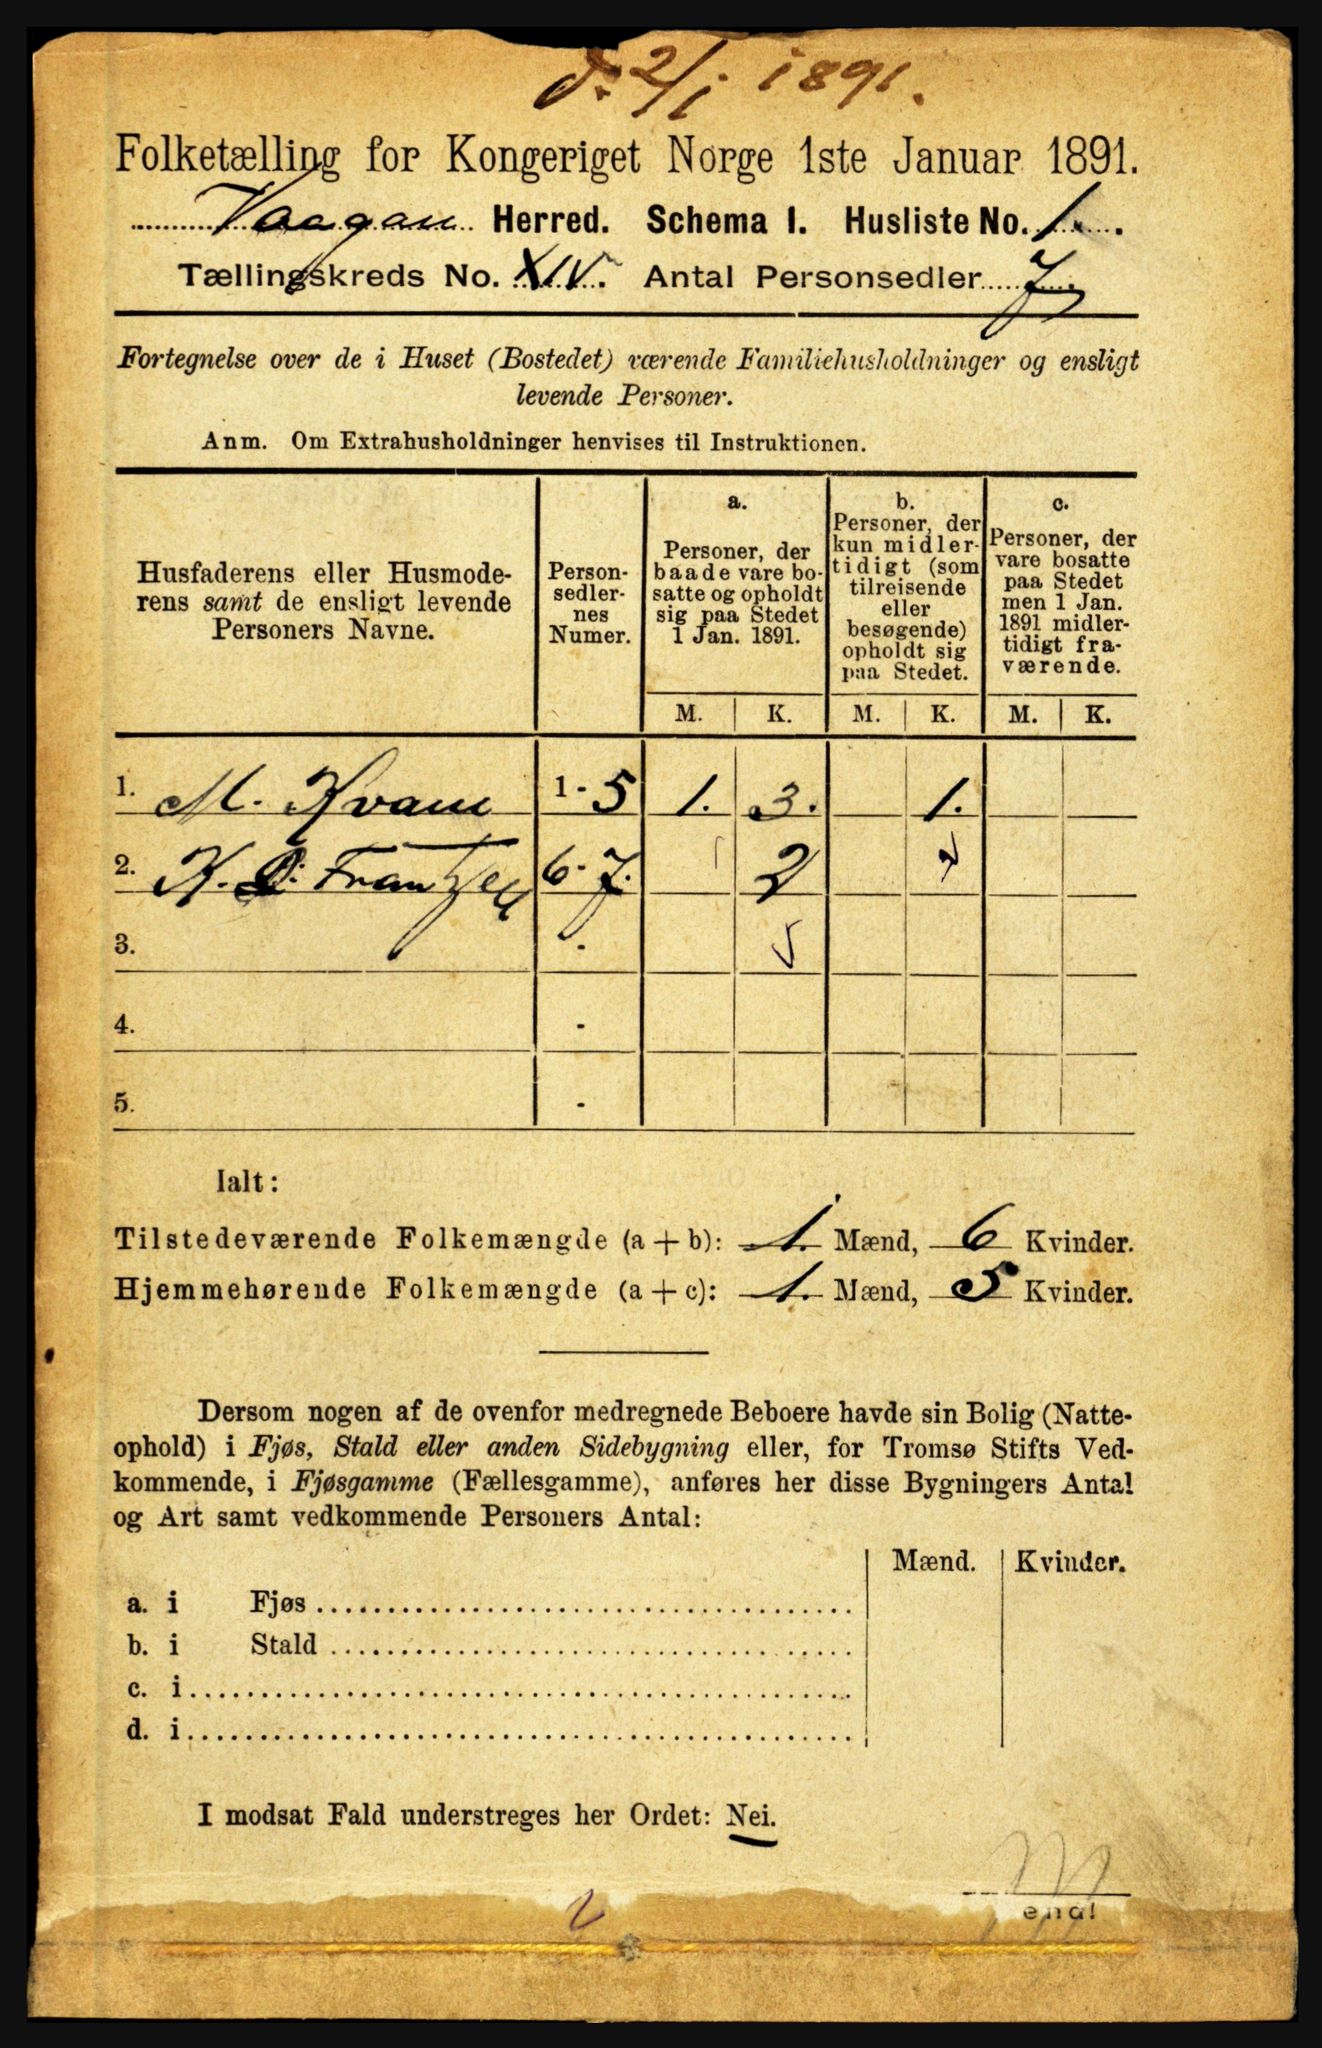 d. 2/1 1891.
Folketælling for Kongeriget Norge 1ste Januar 1891.
Vaagan Herred. Schema I. Husliste No. 1.
Tællingskreds No. XIV. Antal Personsedler 7.
Fortegnelse over de i Huset (Bostedet) værende Familiehusholdninger og ensligt
levende Personer.
Anm. Om Extrahusholdninger henvises til Instruktionen.
Husfaderens eller Husmode-
rens samt de ensligt levende
Personers Navne.
Person-
sedler-
nes
Numer.
a.
Personer, der
baade vare bo-
satte og opholdt
sig paa Stedet
1 Jan. 1891.
b.
Personer, der
kun midler-
tidigt (som
tilreisende
eller
besøgende)
opholdt sig
paa Stedet.
c.
Personer, der
vare bosatte
paa Stedet
men 1 Jan.
1891 midler-
tidigt fra-
værende.
M. K. M. K. M. K.
1. M. Kvam 1 - 5 1. 3. 1.
2. K. D. Frantzen 6 - 7. 2
3. -
4. -
5. -
Ialt:
Tilstedeværende Folkemængde (a + b): 1. Mænd, 6 Kvinder.
Hjemmehørende Folkemængde (a + c): 1. Mænd, 5 Kvinder.
Dersom nogen af de ovenfor medregnede Beboere havde sin Bolig (Natte-
ophold) i Fjøs, Stald eller anden Sidebygning eller, for Tromsø Stifts Ved-
kommende, i Fjøsgamme (Fællesgamme), anføres her disse Bygningers Antal
og Art samt vedkommende Personers Antal:
Mænd. Kvinder.
a. i Fjøs
b. i Stald
c. i
d. i
I modsat Fald understreges her Ordet: Nei.